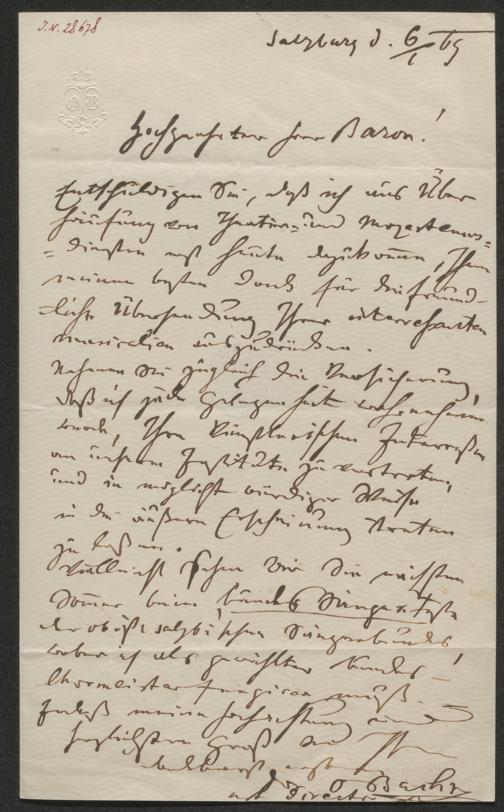 I.N. 28678
Salzburg d. 6/1 69
OB
Hochgeehrter Herr Baron!
Entschuldigen Sie, daß ich aus Über
häufung von Theater- und Mozarteums-
-diensten erst heute dazukomme, Ihnen
meinen besten Dank für die freund-
liche Übersendung Ihrer interessanten
Musicalien auszudrücken.
Nehmen Sie zugleich die Versicherung,
daß ich jede Gelegenheit wahrnehmen
werde, Ihre künstlerischen Interessen
an unserem Institute zu vertreten,
und in möglichst würdiger Weise
in die äußere Erscheinung treten
zu lassen.
Vielleicht sehen wir Sie nächsten
Sommer beim Bundes Sängerfeste
des oböst. salzb.ischen Sängerbundes,
wobei ich als gewählter Bundes-
Chormeister fungiren muß.
Indeß meine Hochachtung und
herzlichsten Gruß von Ihrem
ergebensten
O Bach
Director